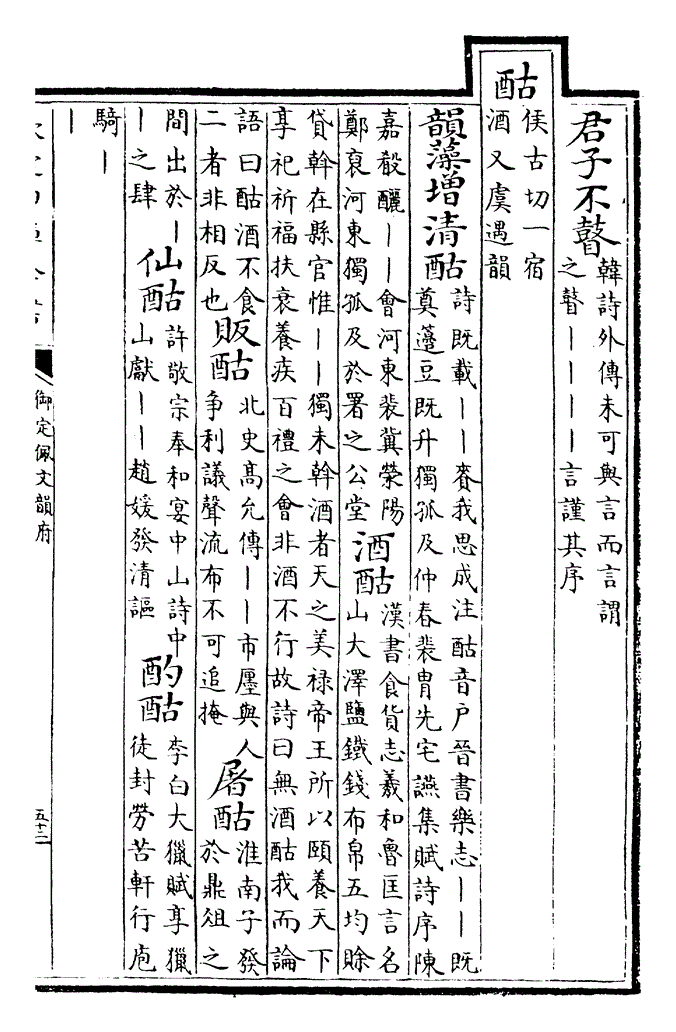 君子不瞽
韓詩外傳未可與言而言謂
之瞽丨丨丨丨言謹其序
酤
侯古切一宿
酒又虞遇韻
韻藻增清酤
詩既載丨丨賚我思成注酤音户晉書樂志丨丨既
奠籩豆既升獨孤及仲春裴胄先宅讌集賦詩序陳
嘉殽釃丨丨會河東裴冀滎陽
鄭裒河東獨孤及於署之公堂
酒酤
漢書食貨志羲和魯匡言名
山大澤鹽鐵錢布帛五均賒
貸斡在縣官惟丨丨獨未斡酒者天之美禄帝王所以頤養天下
享祀祈福扶衰養疾百禮之會非酒不行故詩曰無酒酤我而論
語曰酤酒不食
二者非相反也
販酤
北史高允傳丨丨市廛與人
争利議聲流布不可追掩
屠酤
淮南子發
於鼎俎之
間出於丨
丨之肆
仙酤
許敬宗奉和宴中山詩中
山獻丨丨趙媛發清謳
酌酤
李白大獵賦享獵
徒封勞苦軒行庖
騎丨
丨
御定佩文韻府
五十二